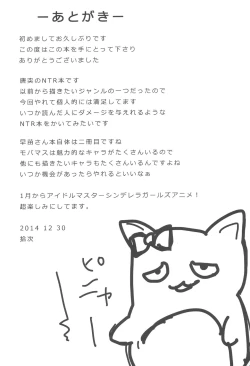 －あとがき－
初めましてお久しぶりです
この度はこの本を手にとって下さり
ありがとうございました
勝栄のNTR本です
以前から描きたいジャンルの一つだったので
今回やれて個人的には満足してます
いつか読んだ人にダメージを与えれるような
NTR本をかいてみたいです
早苗さん本自体は二冊目ですね
モバマスは魅力的なキャラがたくさんいるので
他にも描きたいキャラもたくさんいるんですよね
いつか機会があったらやれるといいなぁ
1月からアイドルマスターシンデレラガールズアニメ！
超楽しみにしてます。
2014 12 30
鈴次
ピニャー